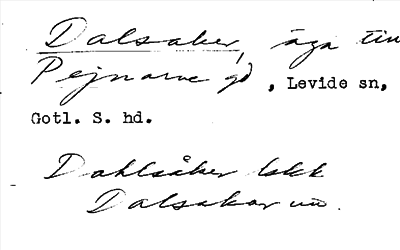 Dalsaker, äga till
Pejnarve gd, Levide sn,
Gotl. S. hd.
Dahlsåker
Dalsakar